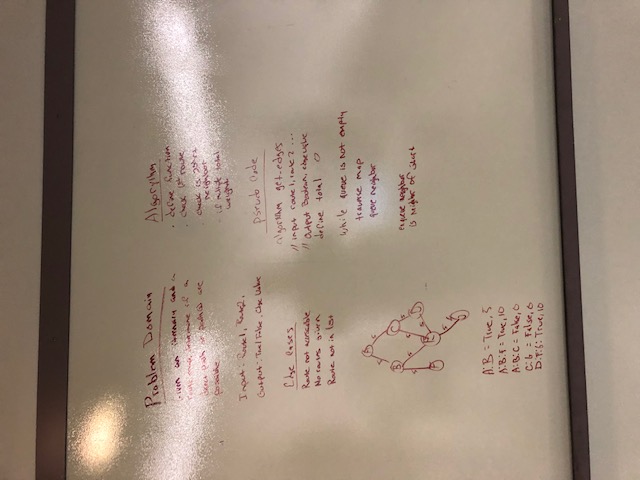 Problem Domain
Given an itinerary and a
route map, determine if a
direct path is possible are
possible
Input: Route1, Route2,
Output: True/False, Edge Value
Edge Cases
Route not accessible
No routes given
Route not in list
A:B = True, 5
A:B:F = True, 10
A:B:C = False, 0
C:G = False, 0
D:F:G: True, 10
Algorithm
define function
check 1st route
check is 2nd
neighbor
if multiple total
weight
Pseudo Code
algorithm get-edges
// input route1, route2 ...
// output Boolean, edge value
define total 0
While queue is not empty
traverse map
neighbor
neighbor
is of start